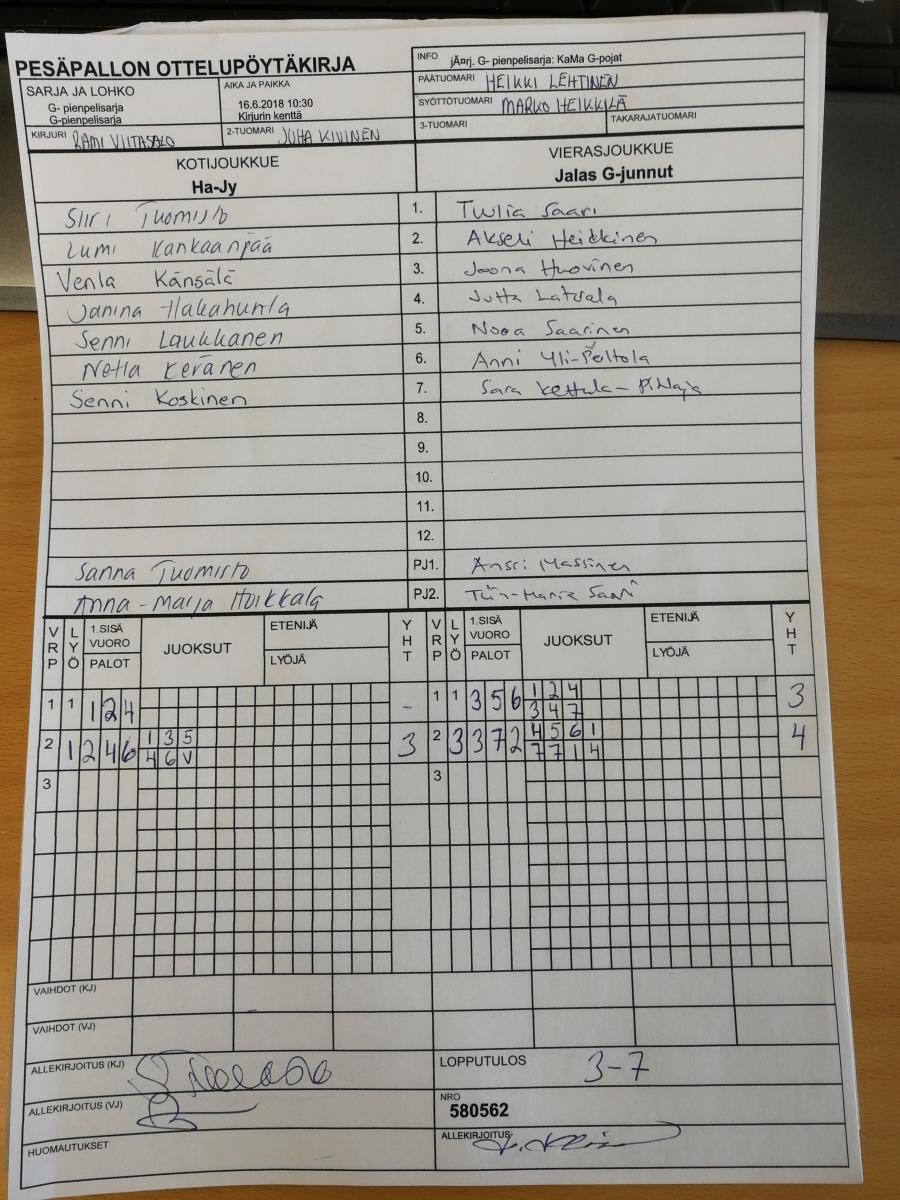 PESÄPALLON OTTELUPÖYTÄKIRJA
INFO jÃ¤rj. G- pienpelisarja: KaMa G-pojat
PÄÄTUOMARI HEIKKI LEHTINEN
SARJA JA LOHKO
G- pienpelisarja
G-pienpelisarja
AIKA JA PAIKKA
16.6.2018 10:30
Kirjurin kenttä
SYÖTTÖTUOMARI MARKO HEIKKILÄ
KIRJURI RAMI VIITASALO
2-TUOMARI JUHA KIVINEN
3-TUOMARI
TAKARAJATUOMARI
KOTIJOUKKUE
Ha-Jy
VIERASJOUKKUE
Jalas G-junnut
Siiri Tuomisto 1. Tuulia Saari
Lumi Kankaanpää 2. Akseli Heikkinen
Venla Känsälä 3. Joona Huovinen
Janina Hakahuhta 4. Jutta
Senni Laukkanen 5. Nooa Saarinen
Netta Keränen 6. Anni Yli-Peltola
Senni Koskinen 7. Sara
8.
9.
10.
11.
12.
Sanna Tuomisto PJ1. Anssi
Anna-Marja Hoikkala PJ2. Saari
VRP LYÖ 1.SISÄ VUORO PALOT JUOKSUT ETENIJÄ LYÖJÄ YHT VRP LYÖ 1.SISÄ VUORO PALOT JUOKSUT ETENIJÄ LYÖJÄ YHT
1 1 1 2 4 - 1 1 3 5 6 1 2 4 3
3 4 7
2 1 2 4 6 1 3 5 3 2 3 3 7 2 4 5 6 1 4
4 6 V 7 7 1 4
3 3
VAIHDOT (KJ)
VAIHDOT (VJ)
ALLEKIRJOITUS (KJ)
LOPPUTULOS 3-7
ALLEKIRJOITUS (VJ)
NRO
580562
HUOMAUTUKSET
ALLEKIRJOITUS: